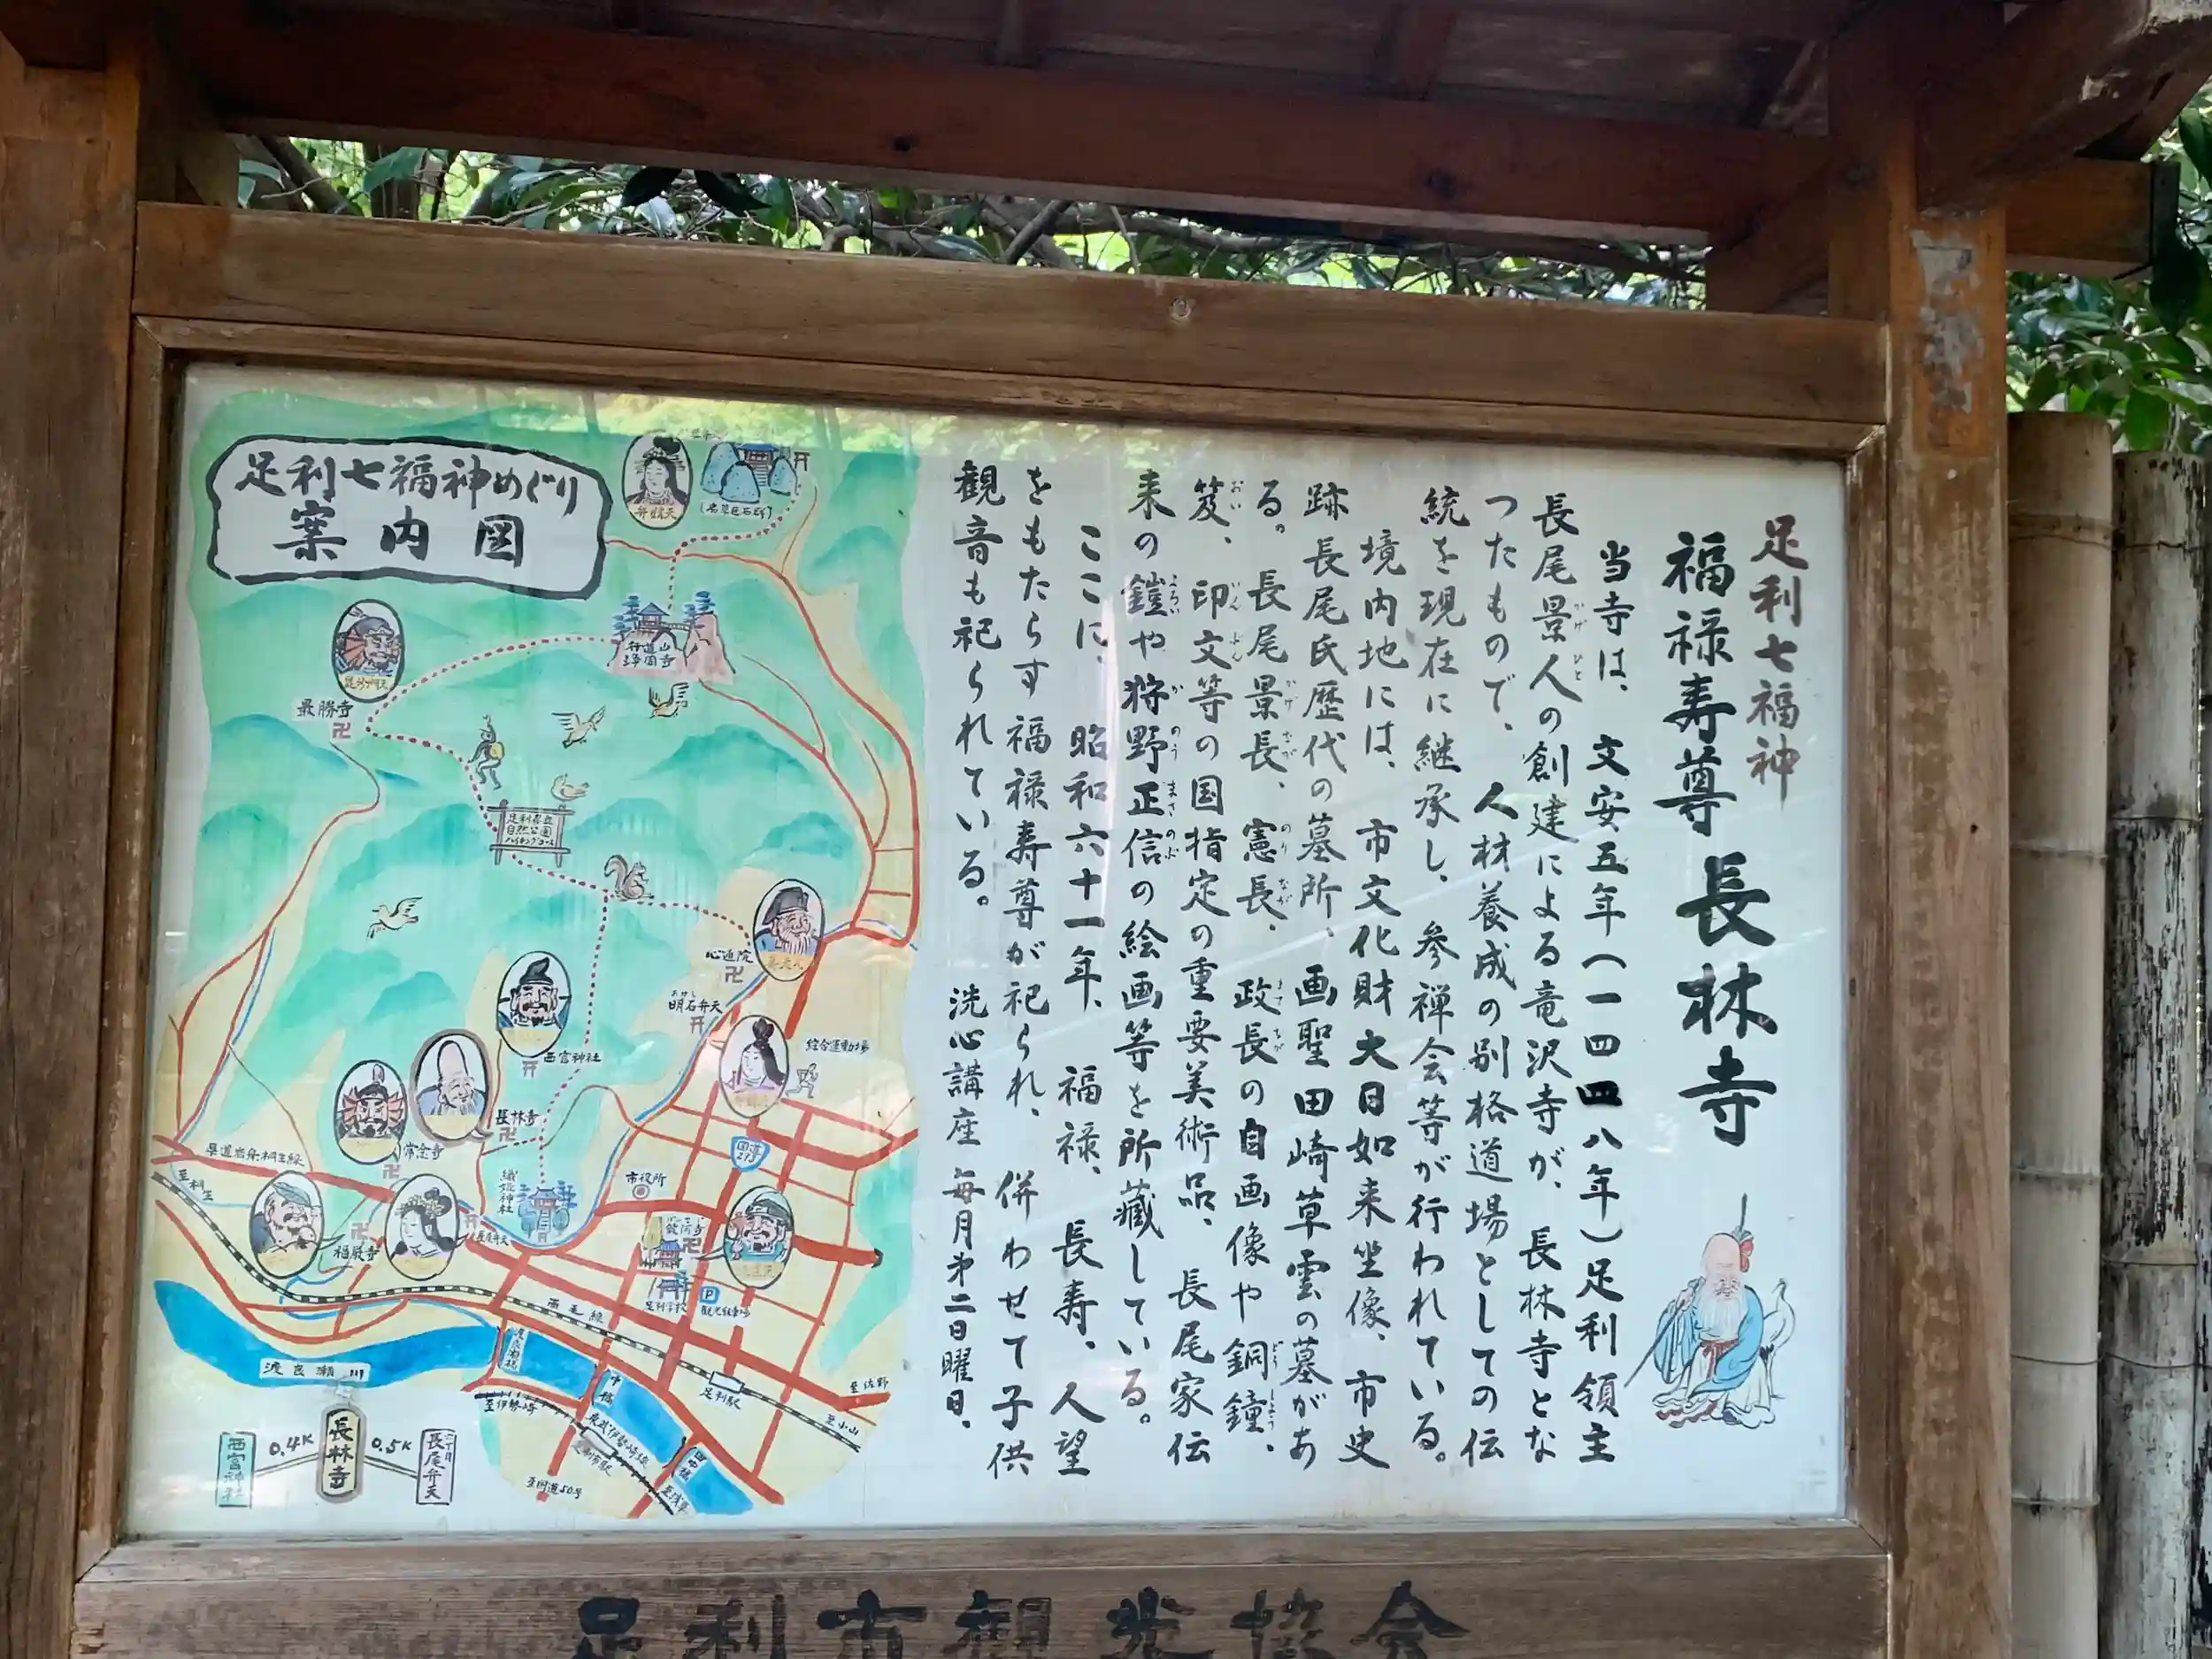 足利七福神
福禄寿尊 長林寺
当寺は、文安五年(一四四八年)足利領主
長尾景人の創建による竜沢寺が、長林寺とな
つたもので、人材養成の別格道場としての伝
統を現在に継承し、参禅会等が行われている。
境内地には、市文化財大日如来坐像、市史
跡長尾氏歴代の墓所、画聖田崎草雲の墓があ
る。長尾景長、憲長、政長の自画像や銅鐘、
笈、印文等の国指定の重要美術品、長尾家伝
来の鎧や狩野正信の絵画等を所蔵している。
ここに、昭和六十一年、福禄、長寿、人望
をもたらす福禄寿尊が祀られ、併わせて子供
観音も祀られている。洗心講座 毎月第二日曜日、
足利七福神めぐり
案内図
弁財天
行道山
浄因寺
最勝寺
足利県立
自然公園
ハイキングコース
心通院
明石弁天
西宮神社
総合運動場
長林寺
常念寺
県道岩舟桐生線
至桐生
織姫神社
市役所
国道
293
福厳寺
長尾弁天
足利学校
P
観光駐車場
両毛線
渡良瀬川
渡良瀬橋
中橋
足利駅
至佐野
至小山
至伊勢崎
東武伊勢崎線
田中橋
至国道50号
至浅草
西宮神社
0.4K
長林寺
0.5K
長尾弁天
足利市観光協会